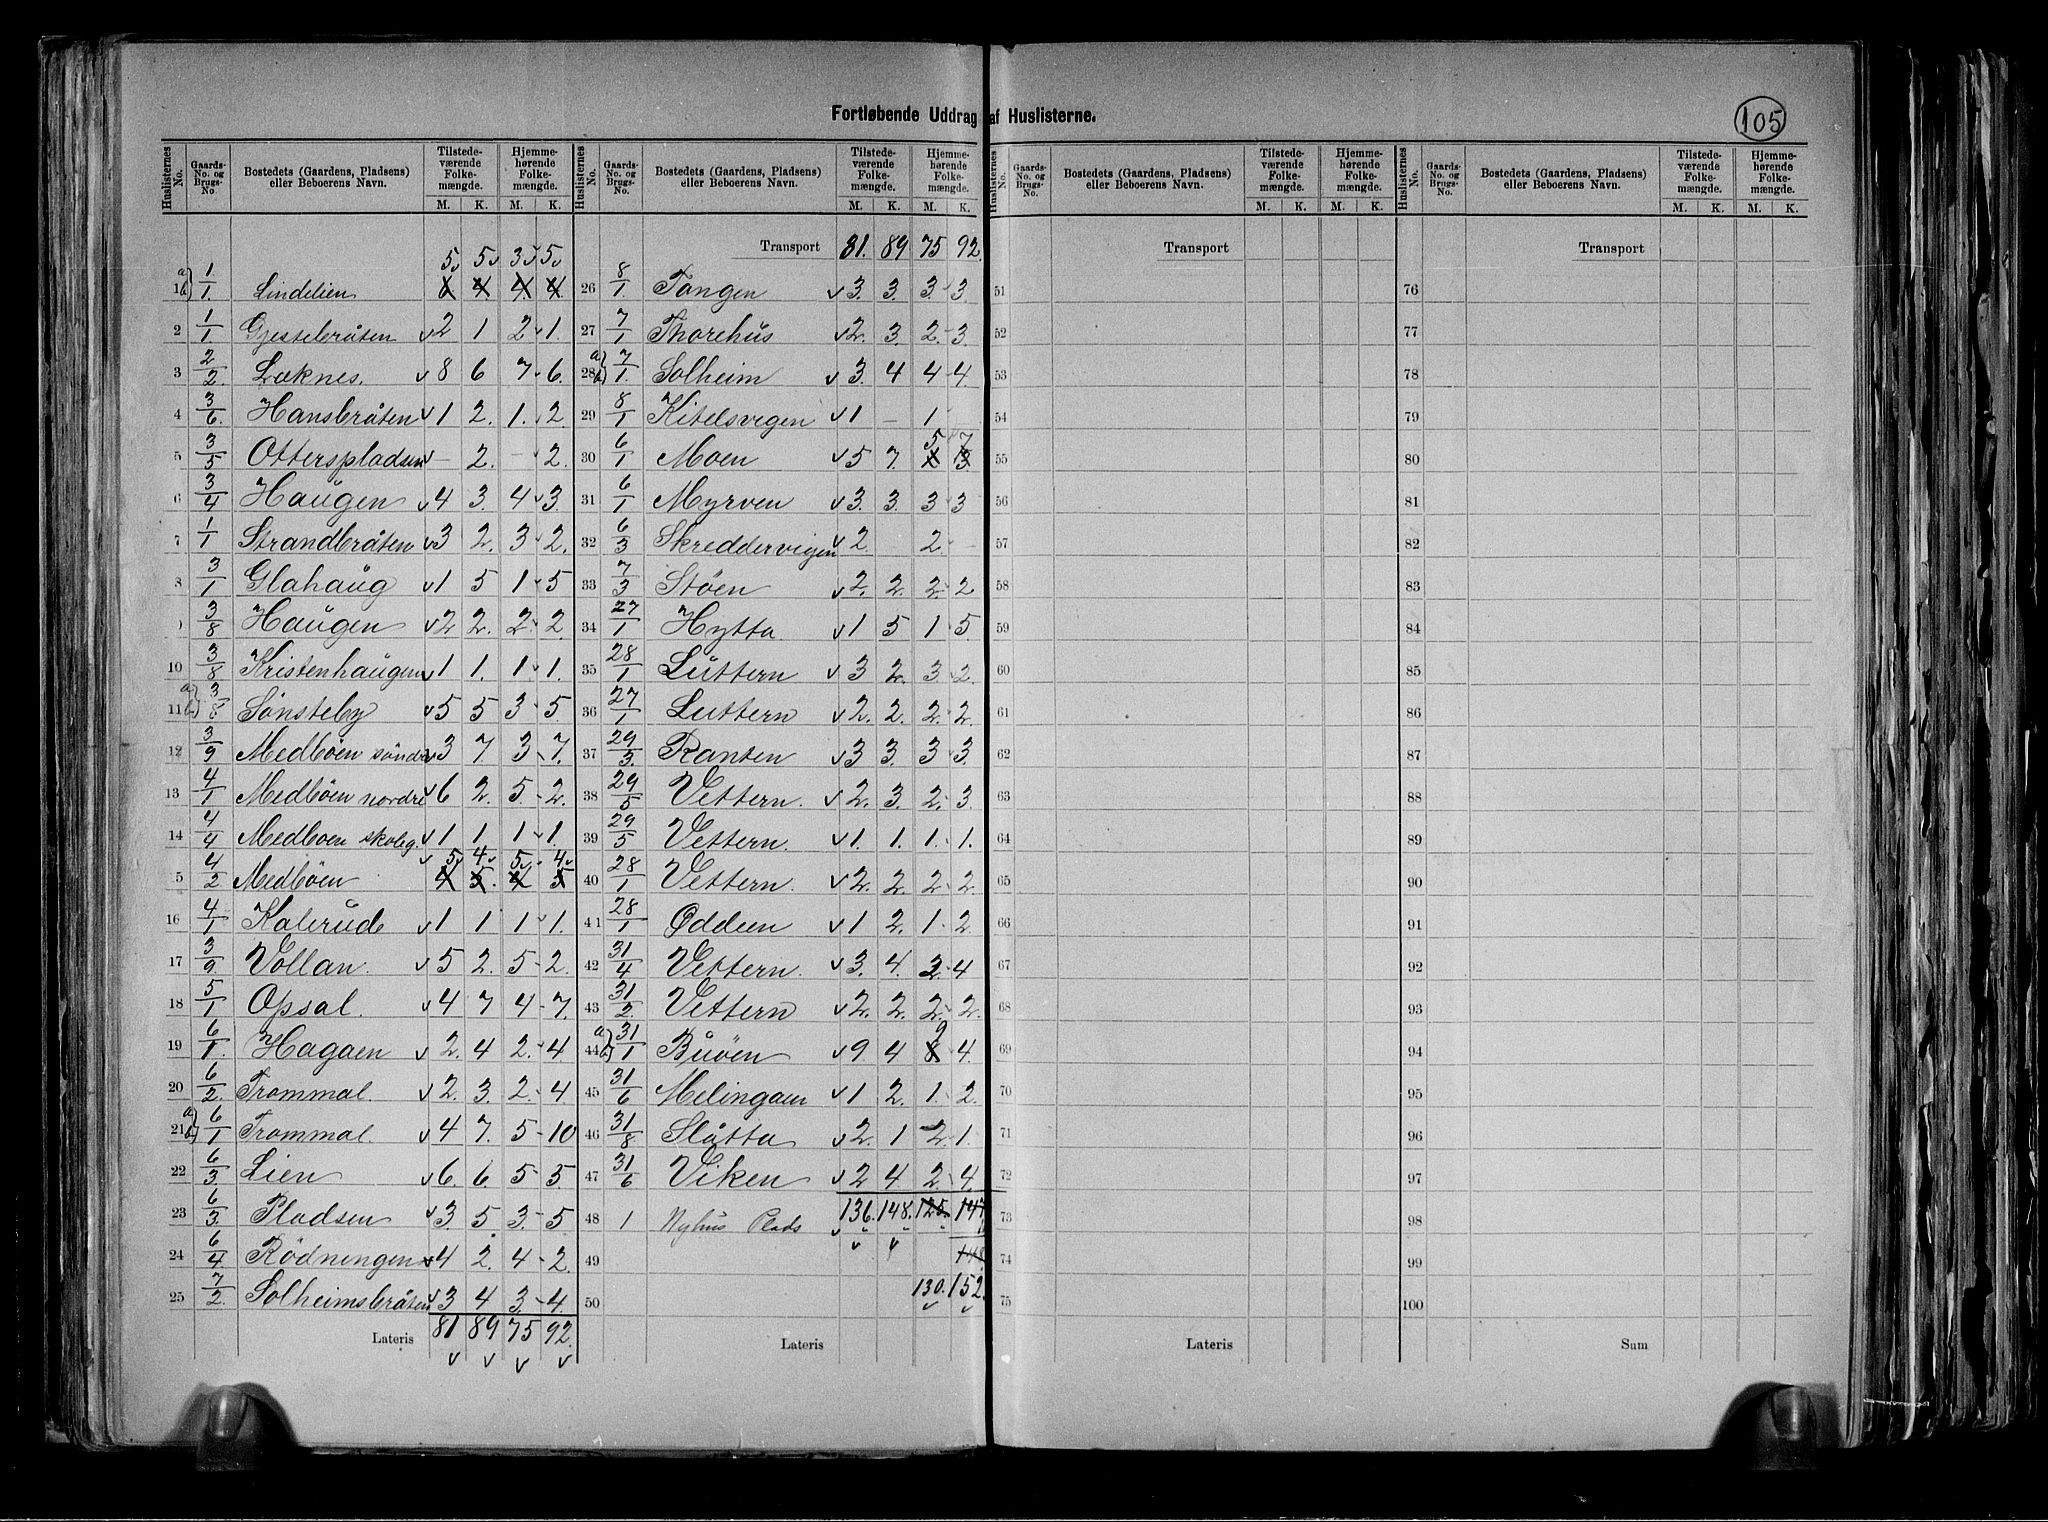 Fortløbende Uddrag af Huslisterne.
105
Huslisternes No. | Gaards-No. og Brugs-No. | Bostedets (Gaardens, Pladsens) eller Beboerens Navn. | Tilstedeværende Folkemængde. M. K. | Hjemmehørende Folkemængde. M. K.
5 5 3 5
1 a) b) 1/1. Lindelien 6 4 4. 4.
2 1/1 Gjestebråten 2 1 2 1.
3 2/2. Læknes. 8 6 7 6.
4 3/6. Hansbråten 1 2. 1. 2
5 3/5 Otterspladsen – 2. – 2.
6 3/4 Haugen 4 3. 4 3.
7 1/1 Strandbråten 3 2. 3 2.
8 3/1 Glahaug 1 5 1 5
9 3/8 Haugen 2 2. 2 2.
10 3/8 Kristenhaugen 1 1. 1 1.
11 a) b) 3/8 Sønsteby 5 5 3 5
12 3/9 Medbøen søndre 3 7 3 7.
13 4/1 Medbøen nordre 6 2. 5 2.
14 4/4 Medboen skoleg. 1 1. 1 1.
5 4 5 4
5 4/2 Medbøen 4 5. 4 5
16 4/1 Kalerud 1 1 1 1.
17 3/9. Vollan. 5 2. 5 2.
18 5/1 Opsal. 4 7 4 7.
19 6/1. Hagaen 2. 4 2. 4.
20 6/2. Trommal. 2. 3. 2 4
21 a) b) 6/1 Trommal. 4 7. 5 10
22 6/3 Lien 6. 6. 5 5
23 6/3. Pladsen 3. 5 3. 5
24 6/4 Rödningen 4 2. 4 2.
25 7/2. Solheimsbråten 3 4 3. 4.
Lateris 81 89 75 92.
Transport 81. 89 75 92.
26 8/1 Tangen 3. 3. 3 3.
27 7/1 Thorehus 2. 3. 2 3.
28 a) b) 7/1. Solheim 3. 4 4 4.
29 8/1 Kitelsvigen 1 – 1
5 7
30 6/1 Moen 5 7. 3
31 6/1 Myrven 3. 3. 3 3
32 6/3 Skreddervigen 2 2 –
33 7/3 Støen 2. 2. 2. 2
34 27/1 Hytta 1 5 1 5.
35 28/1 Luttern 3 2. 3 2.
36 27/1 Luttern 2. 2. 2. 2.
37 29/3. Ranten 3 3. 3 3.
38 29/5 Vettern. 2. 3. 2. 3.
39 29/5 Vettern. 1. 1. 1. 1.
40 28/1 Vettern. 2. 2. 2 2.
41 28/1 Oddeen 1 2. 1 2.
42 31/4 Vettern. 3. 4. 3 4
43 31/2. Vettern 2. 2. 2. 2.
9
44 a) b) 31/1 Buöen 9 4 8 4.
45 31/6 Melingaen 1 2. 1 2.
46 31/8 Slåtta 2. 1 2. 1.
47 31/6 Viken 2 4 2. 4.
48 1 Nyhus Plads 136. 148. 125. 147
49 148
50 130. 152.
Lateris
Transport
51
52
53
54
55
56
57
58
59
60
61
62
63
64
65
66
67
68
69
70
71
72
73
74
75
Lateris
Transport
76
77
78
79
80
81
82
83
84
85
86
87
88
89
90
91
92
93
94
95
96
97
98
99
100
Sum